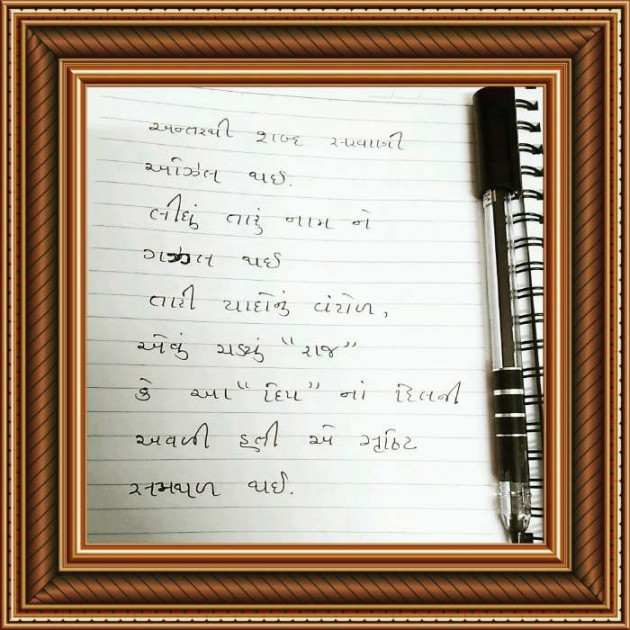 અન્તરથી શબ્દ સરવાણી
અંઝિલ થઈ.
લીધું તારું નામ ને
ગઝલ થઈ
તારી યાદોનું વંટોળ,
એવું ચડ્યું "રાજ"
કે આ "દિપ" નાં દિલની
અવળી હતી એ સૃષ્ટિ
સમથળ થઈ.